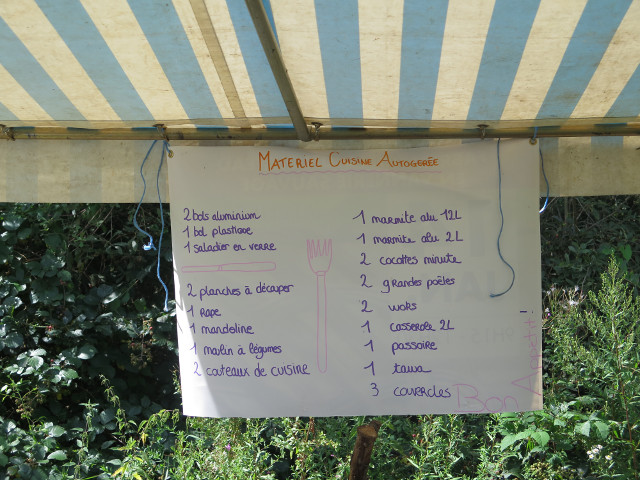 MATERIEL CUISINE AUTOGEREE
2 bols aluminium
1 bol plastique
1 saladier en verre
2 planches à découper
1 Rape
1 mandoline
1 moulin à légumes
2 couteaux de cuisine
1 marmite alu 12L
1 marmite alu 2L
2 cocottes minute
2 grandes poêles
2 woks
1 casserole 2L
1 passoire
1 tawa
3 couvercles
Bon Appétit